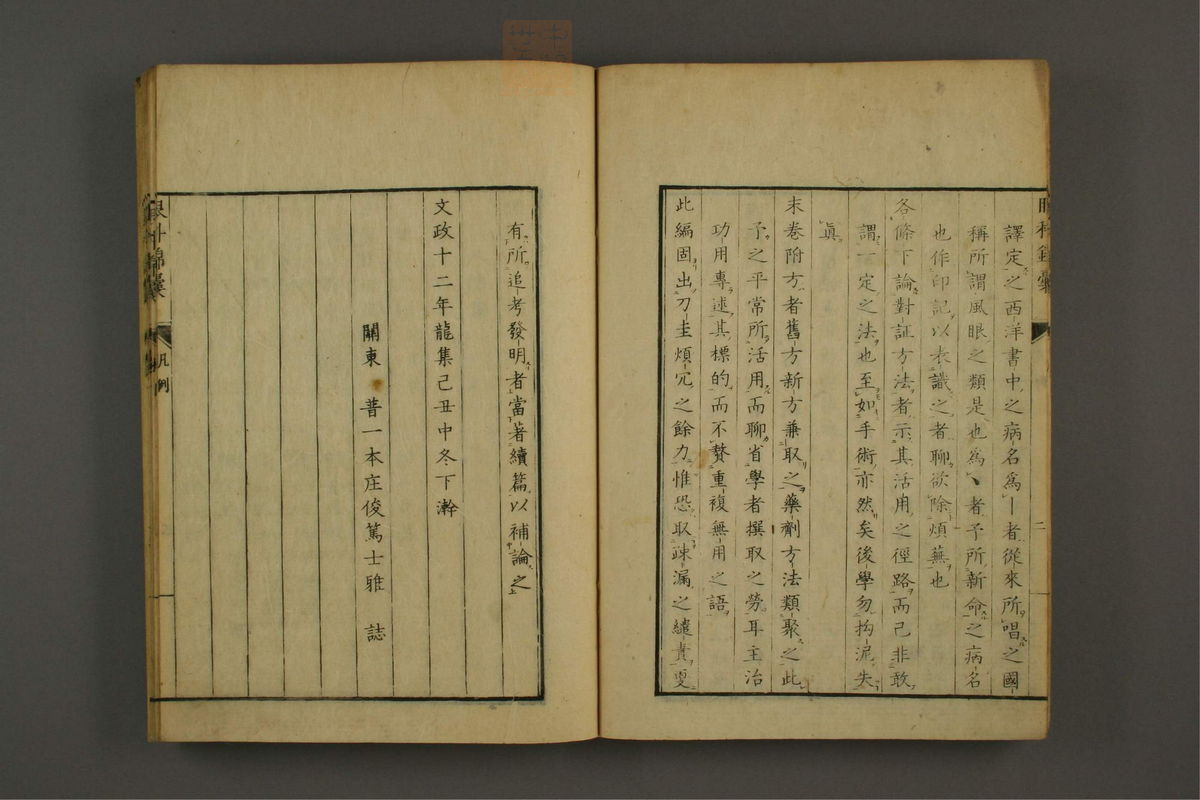 譯定之西洋書中之病名爲｜者從來所唱之國
稱所謂風眼之類是也爲丶者予所新命之病名
也作印記以表識之者聊欲除煩蕪也
各條下論對証方法者示其活用之徑路而已非敢
謂一定之法也至如手術亦然矣後學勿拘泥失
眞
末卷附方者舊方新方兼取之藥劑方法類聚之此
予之平常所活用而聊省學者撰取之勞耳主治
功用專述其標的而不贅重複無用之語
此編固出刀圭煩冗之餘力惟恐取疎漏之譴責更
二
有所追考發明者當著續篇以補論之
文政十二年龍集己丑中冬下澣
關東　普一本庄俊篤士雅　誌
眼科錦囊
凡例